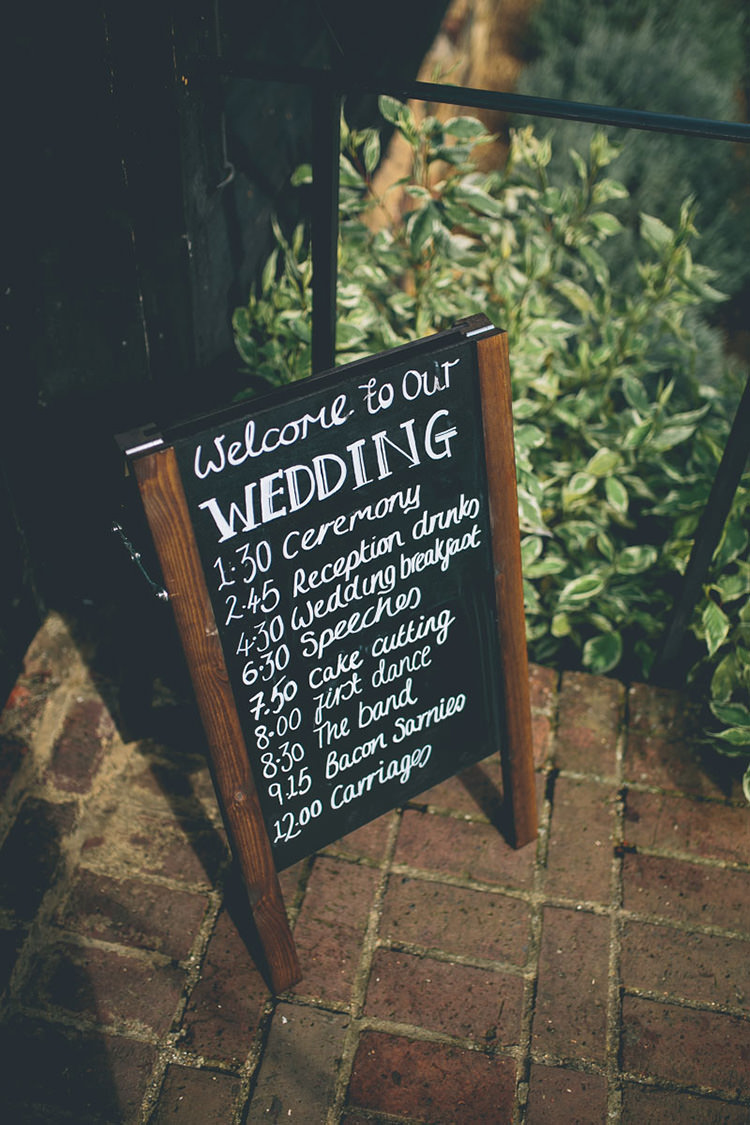 Welcome to our
WEDDING
1.30 Ceremony
2.45 Reception drinks
4.30 Wedding breakfast
6.30 Speeches
7.50 Cake cutting
8.00 first dance
8.30 The band
9.15 Bacon Sarnies
12.00 Carriages